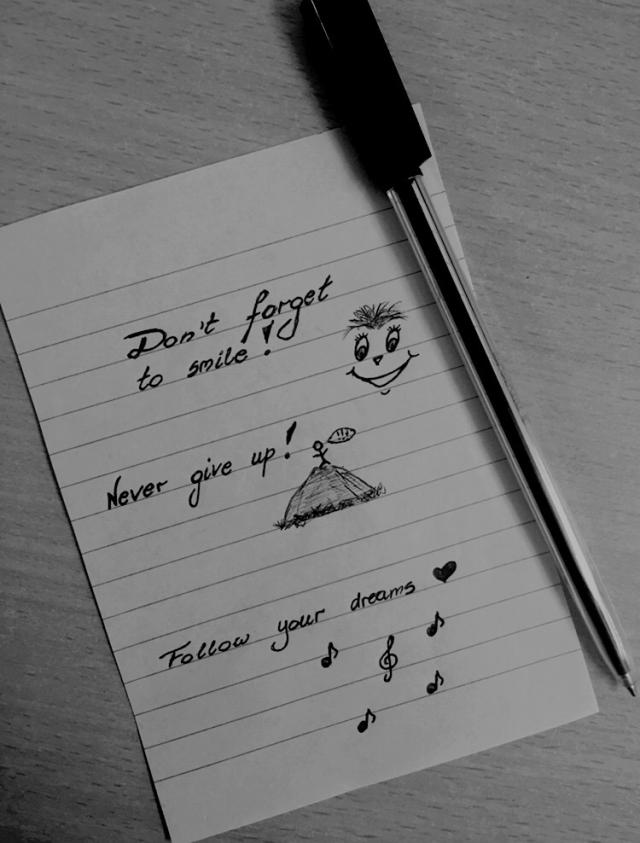 Don't forget
to smile!
Never give up!
Follow your dreams